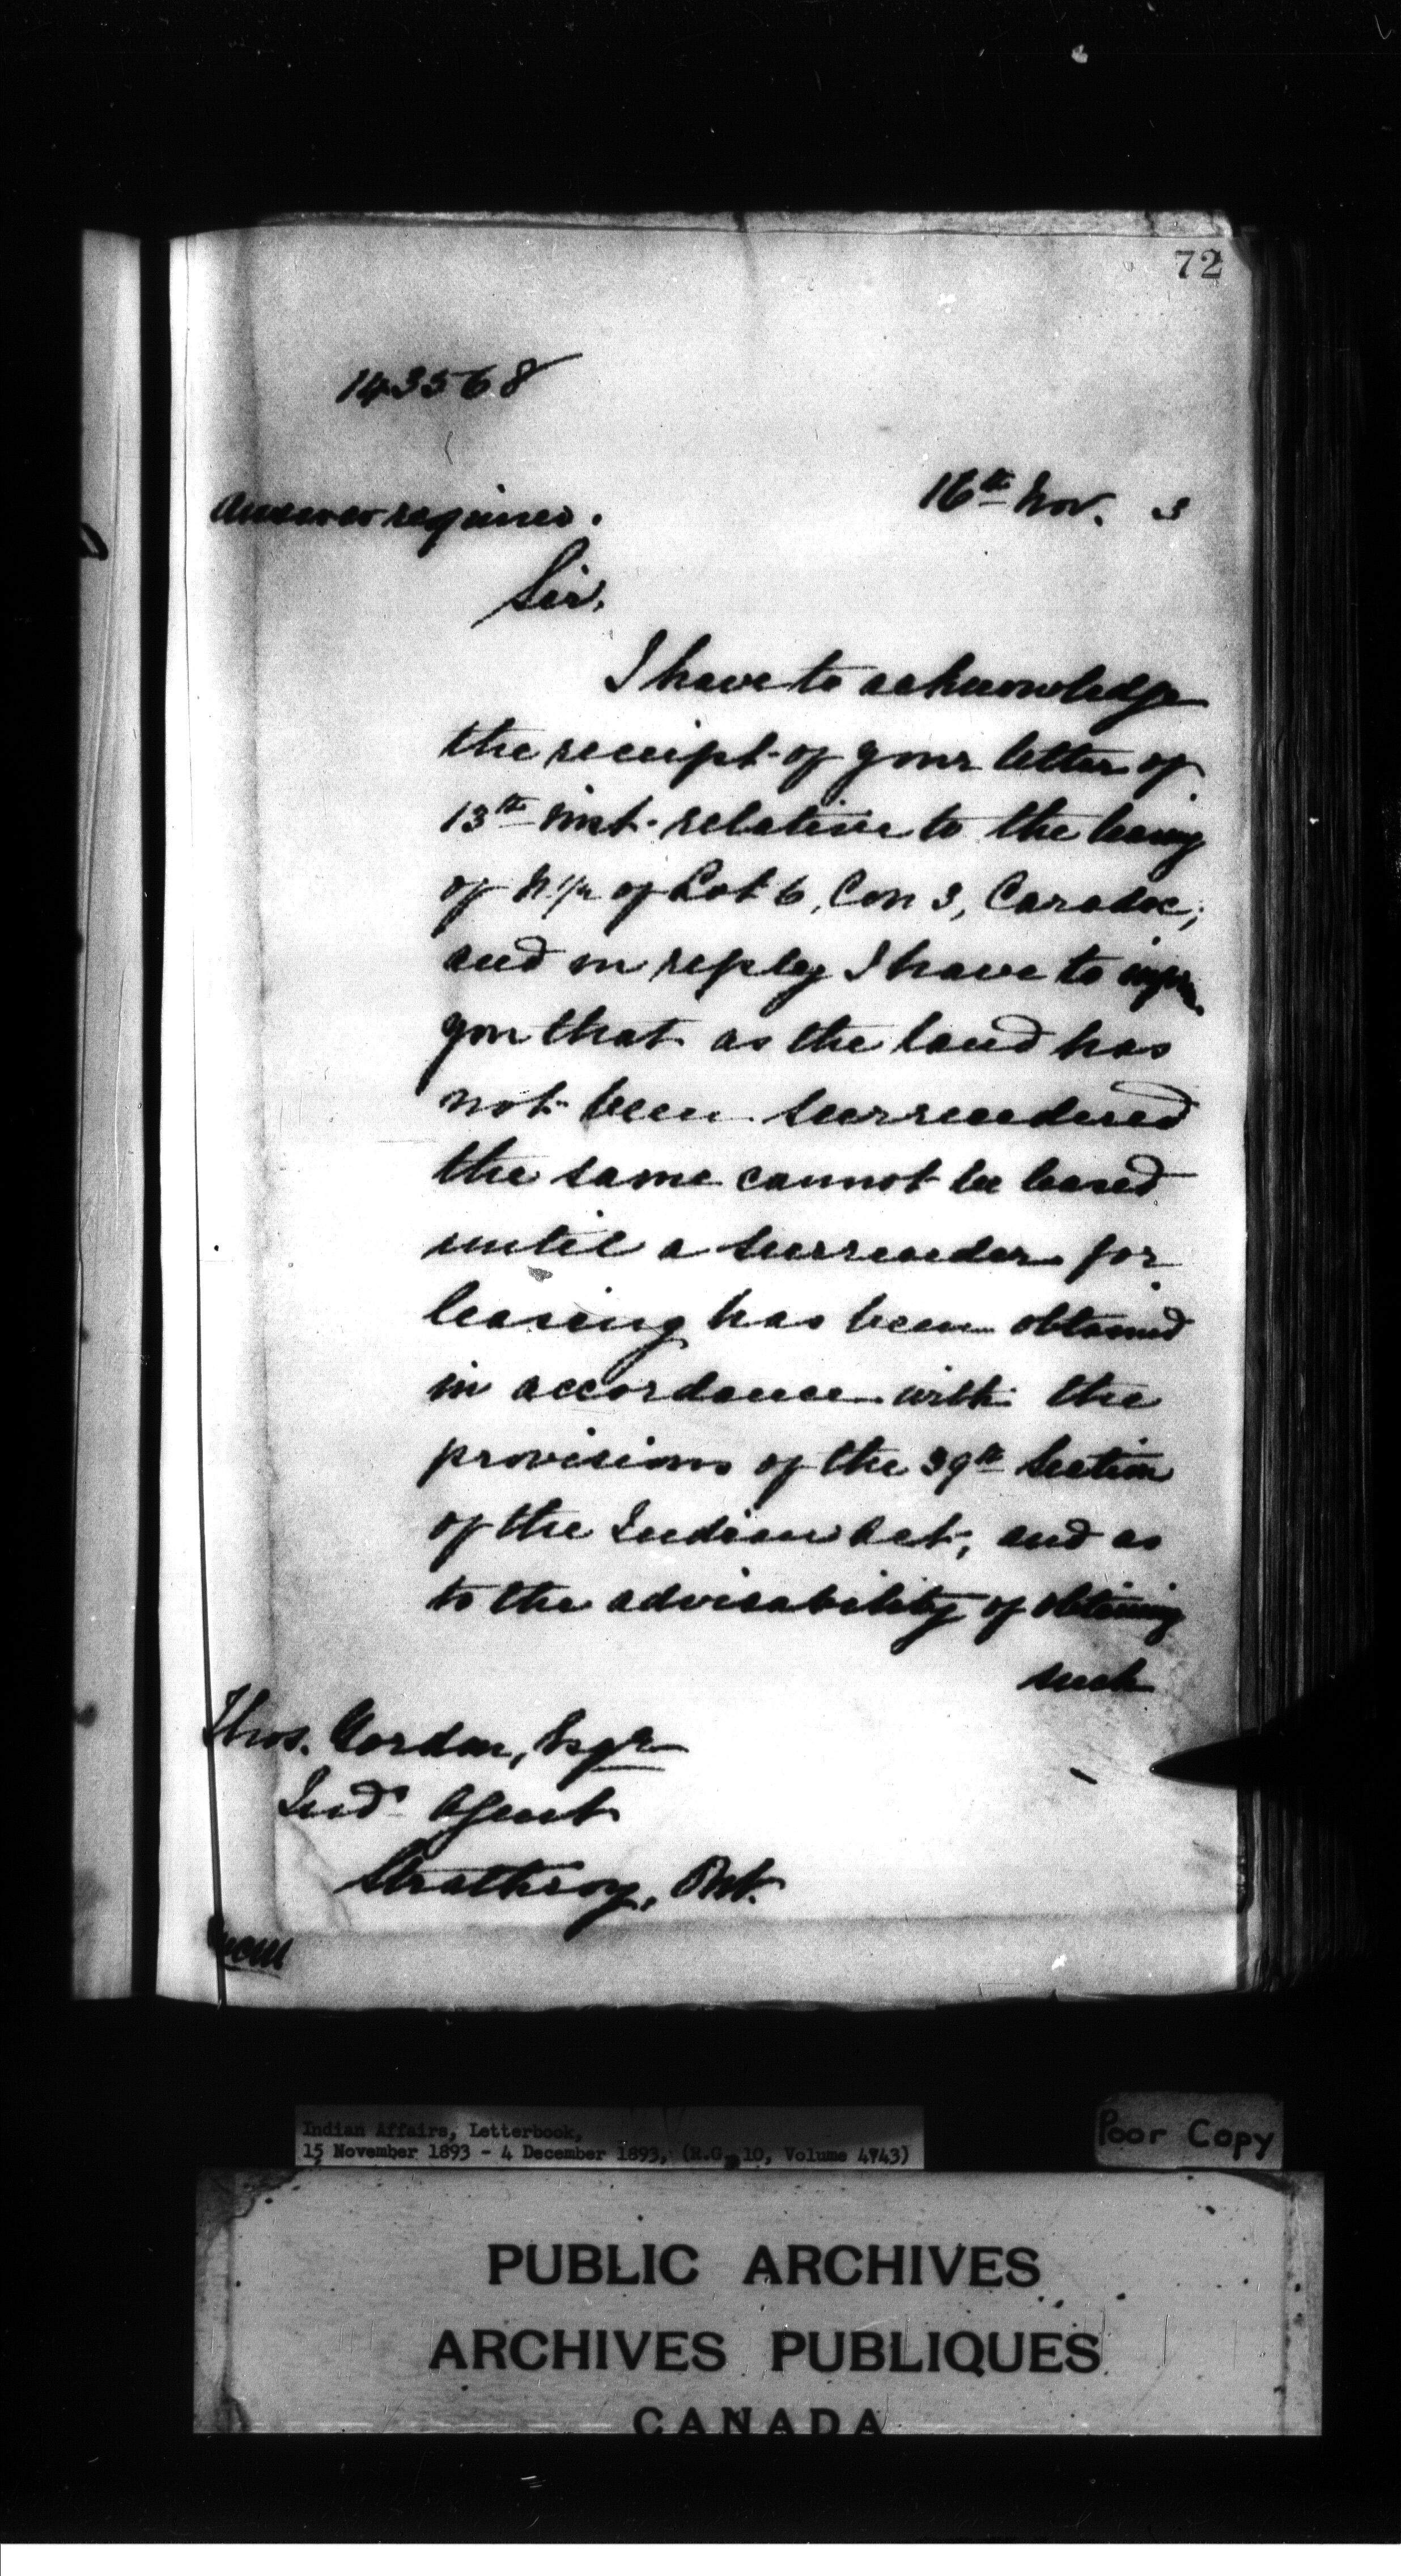 72
143568
Answer required.
16th Nov. 3
Sir,
I have to acknowledge
the receipt of your letter of
13th inst. relative to the leasing
of N. 1/2 of Lot 6, Con 3, Caradoc,
and in reply I have to inform
you that as the land has
not been surrendered
the same cannot be leased
until a surrender for
leasing has been obtained
in accordance with the
provisions of the 39th Section
of the Indian Act, and as
to the advisability of obtaining
such
Thos. Gordon, Esqr
Ind. Agent
Strathroy, Ont.
Indian Affairs, Letterbook,
15 November 1893 - 4 December 1893, (R.G. 10, Volume 4743)
Poor Copy
PUBLIC ARCHIVES
ARCHIVES PUBLIQUES
CANADA